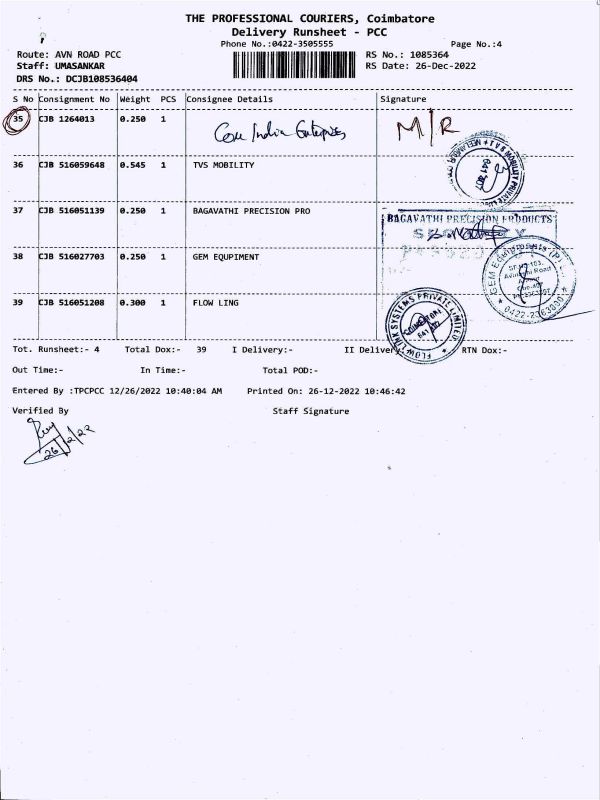 THE PROFESSIONAL COURIERS, Coimbatore
Delivery Runsheet - PCC
Phone No.:0422-3505555 Page No.:4
Route: AVN ROAD PCC RS No.: 1085364
Staff: UMASANKAR RS Date: 26-Dec-2022
DRS No.: DCJB108536404
S No Consignment No Weight PCS Consignee Details Signature
35 CJB 1264013 0.250 1 India Enterprises M/R
36 CJB 516059648 0.545 1 TVS MOBILITY
TVS MOBILITY PRIVATE
641
37 CJB 516051139 0.250 1 BAGAVATHI PRECISION PRO
BAGAVATHI PRECISION PRODUCTS
38 CJB 516027703 0.250 1 GEM EQUPIMENT
GEM Equipments (P)
Avinashi Road
39 CJB 516051208 0.300 1 FLOW LING
FLOW LINK SYSTEMS PRIVATE LIMITED
Tot. Runsheet:- 4 Total Dox:- 39 I Delivery:- II Delivery RTN Dox:-
Out Time:- In Time:- Total POD:-
Entered By :TPCPCC 12/26/2022 10:40:04 AM Printed On: 26-12-2022 10:46:42
Verified By Staff Signature
26/12/22